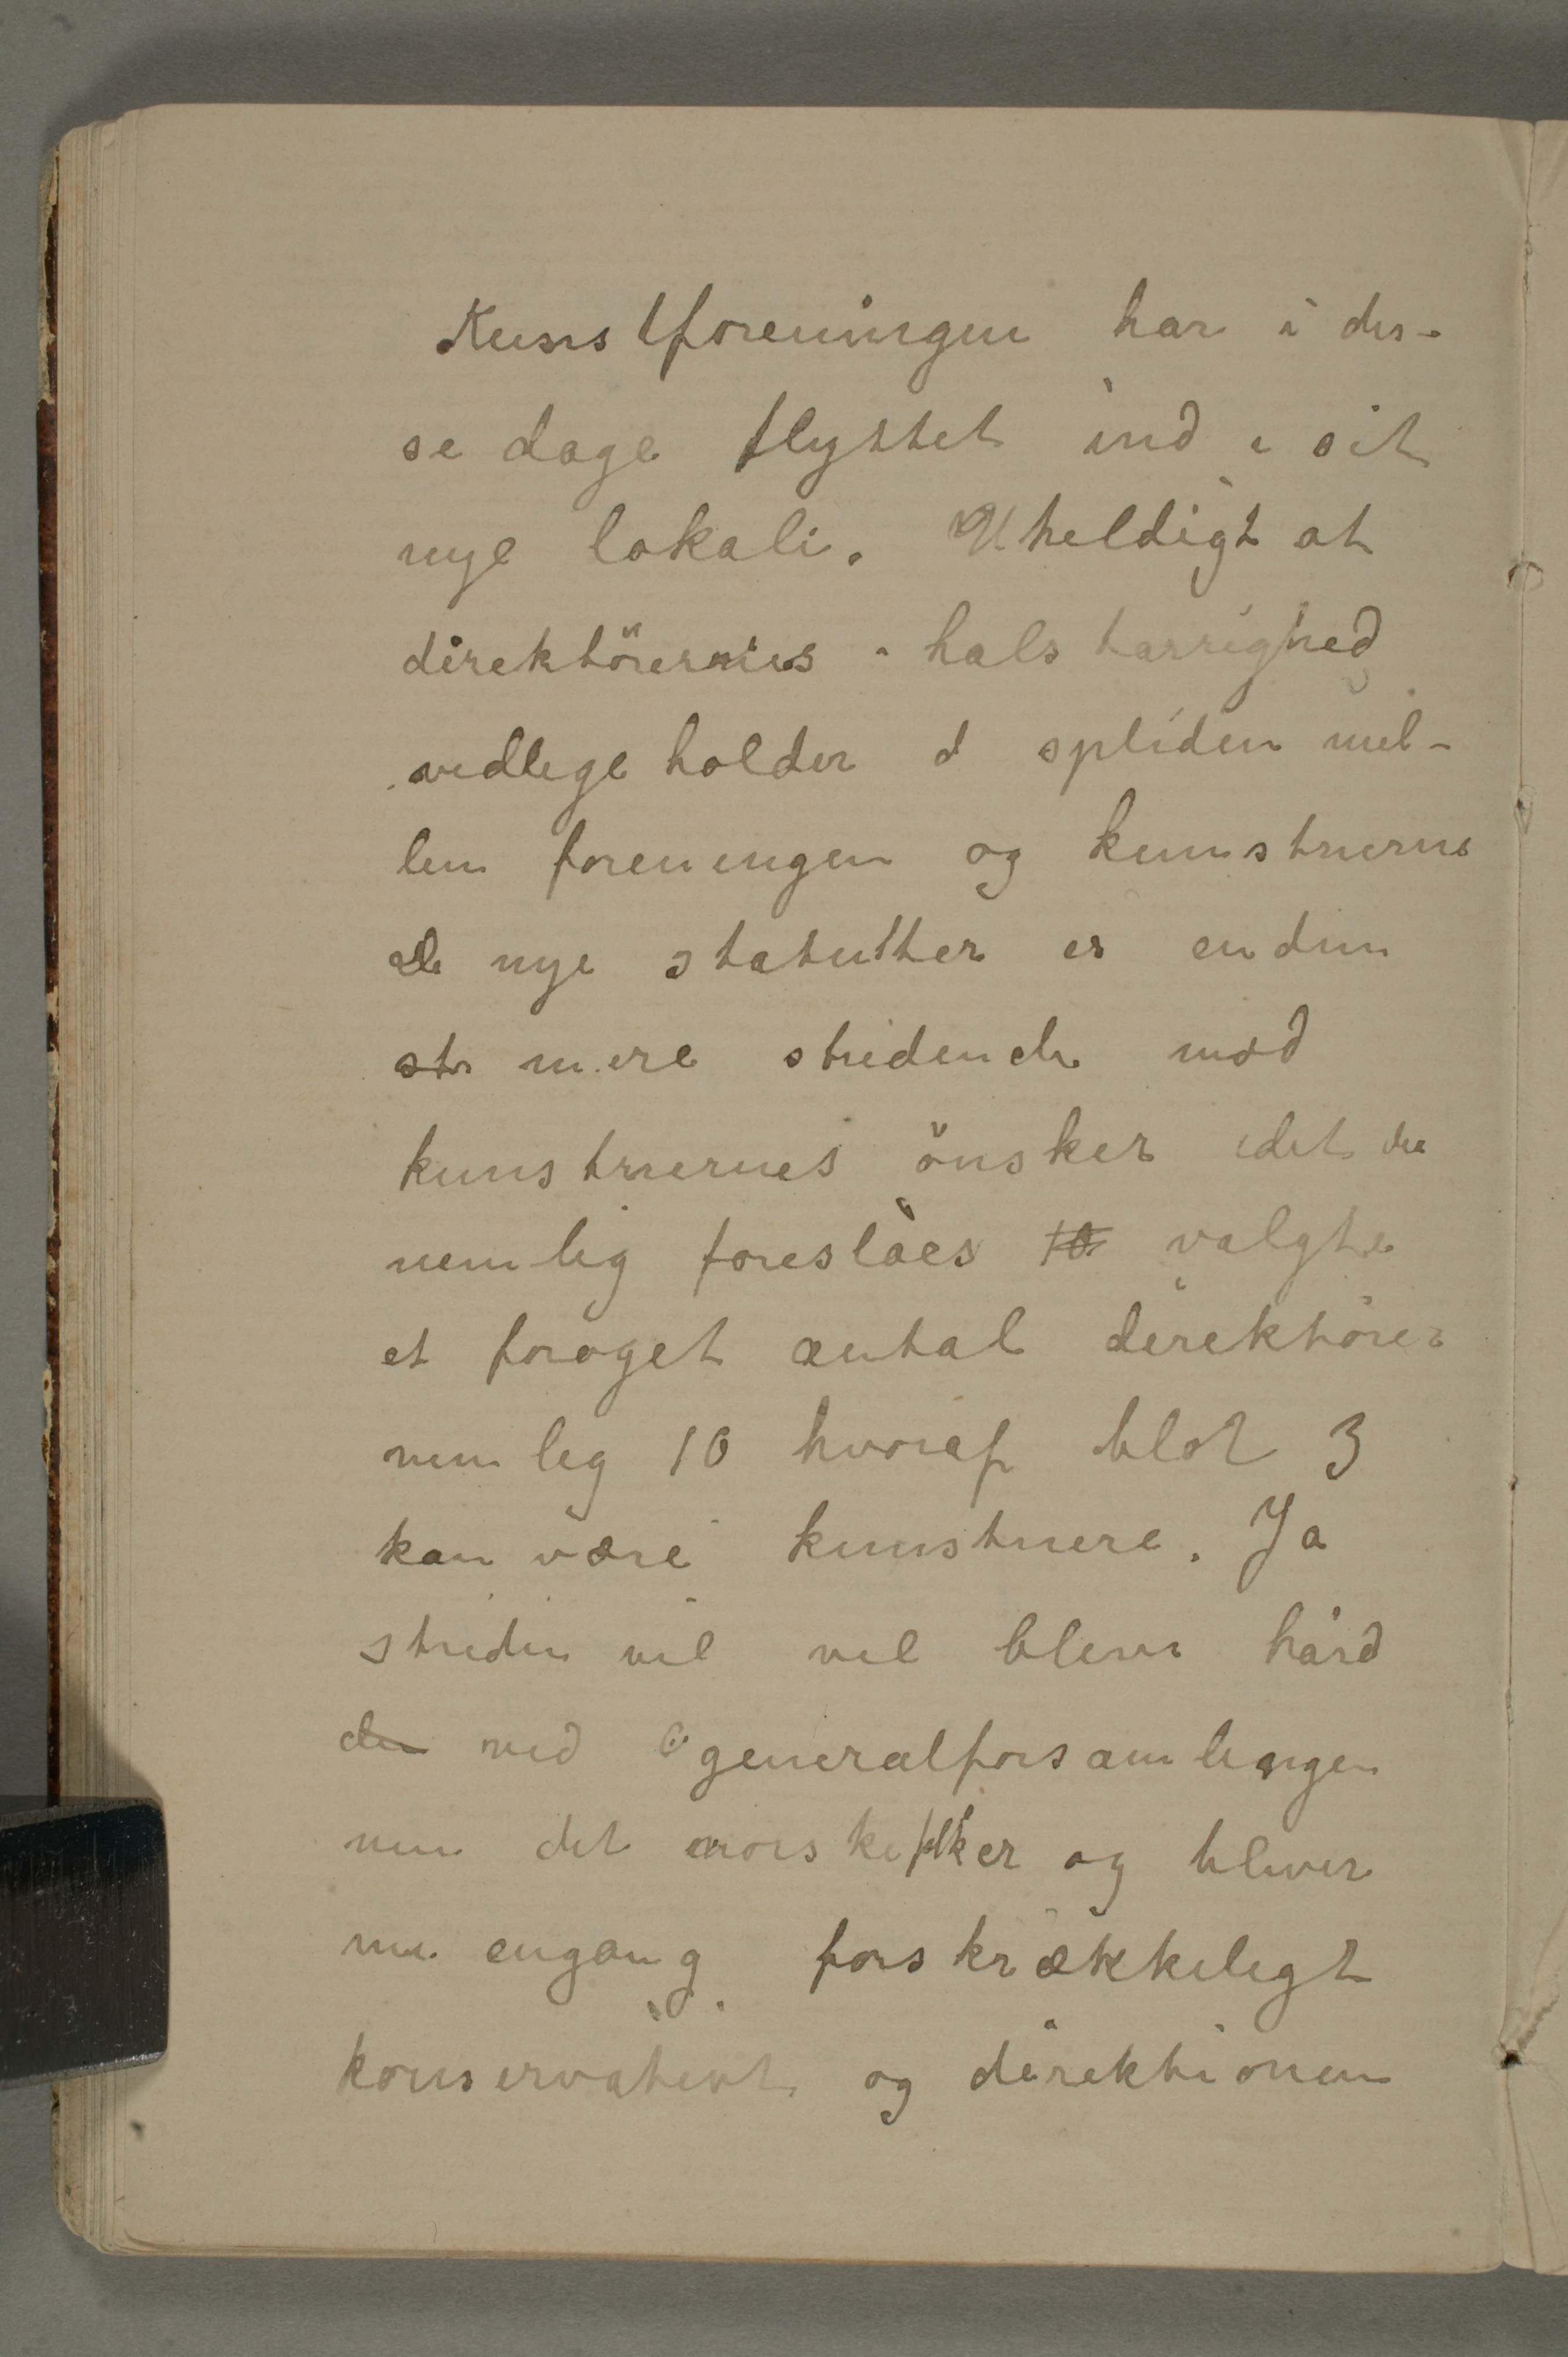 Kunstforeningen har i dis-
se dage flyttet ind i sit
nye lokali. Uheldigt at
direktörernes halstarrighed
vedlegeholder splíden mel-
lem foreningen og kunstnerne
De nye statutter er endnu
mere stridende mod
kunstnernes önsker idet der
nemlig foreslåes valgt
et foröget antal direktörer
nemlig 10 hvoraf blot 3
kan være kunstnere. Ja
striden vil vel blive hård
ved generalforsamlingen
men det norske folk er og bliver
nu engang forskrækkeligt
konservativt og direktionen